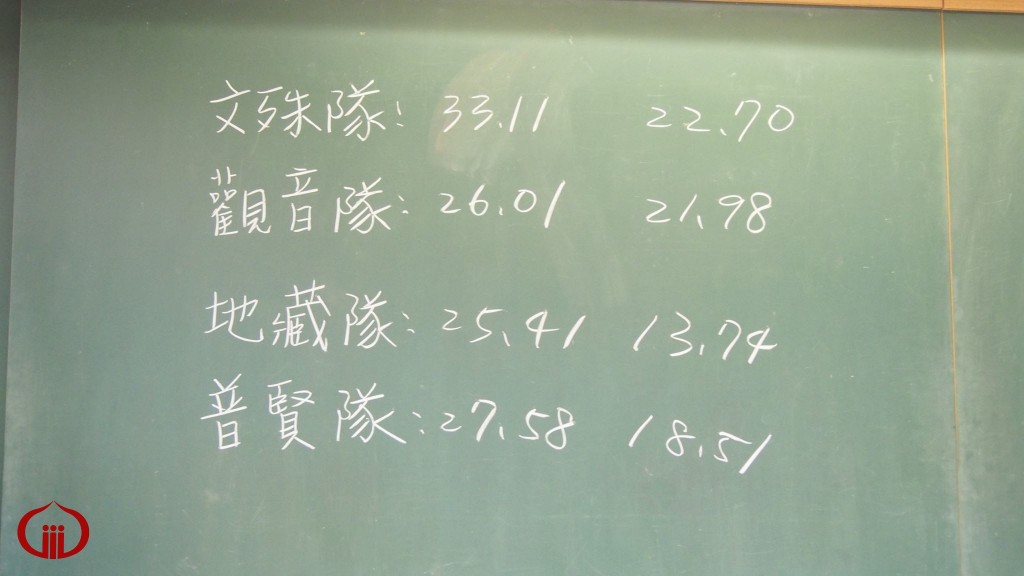 文殊隊: 33.11 22.70
觀音隊: 26.01 21.98
地藏隊: 25.41 13.74
普賢隊: 27.58 18.51